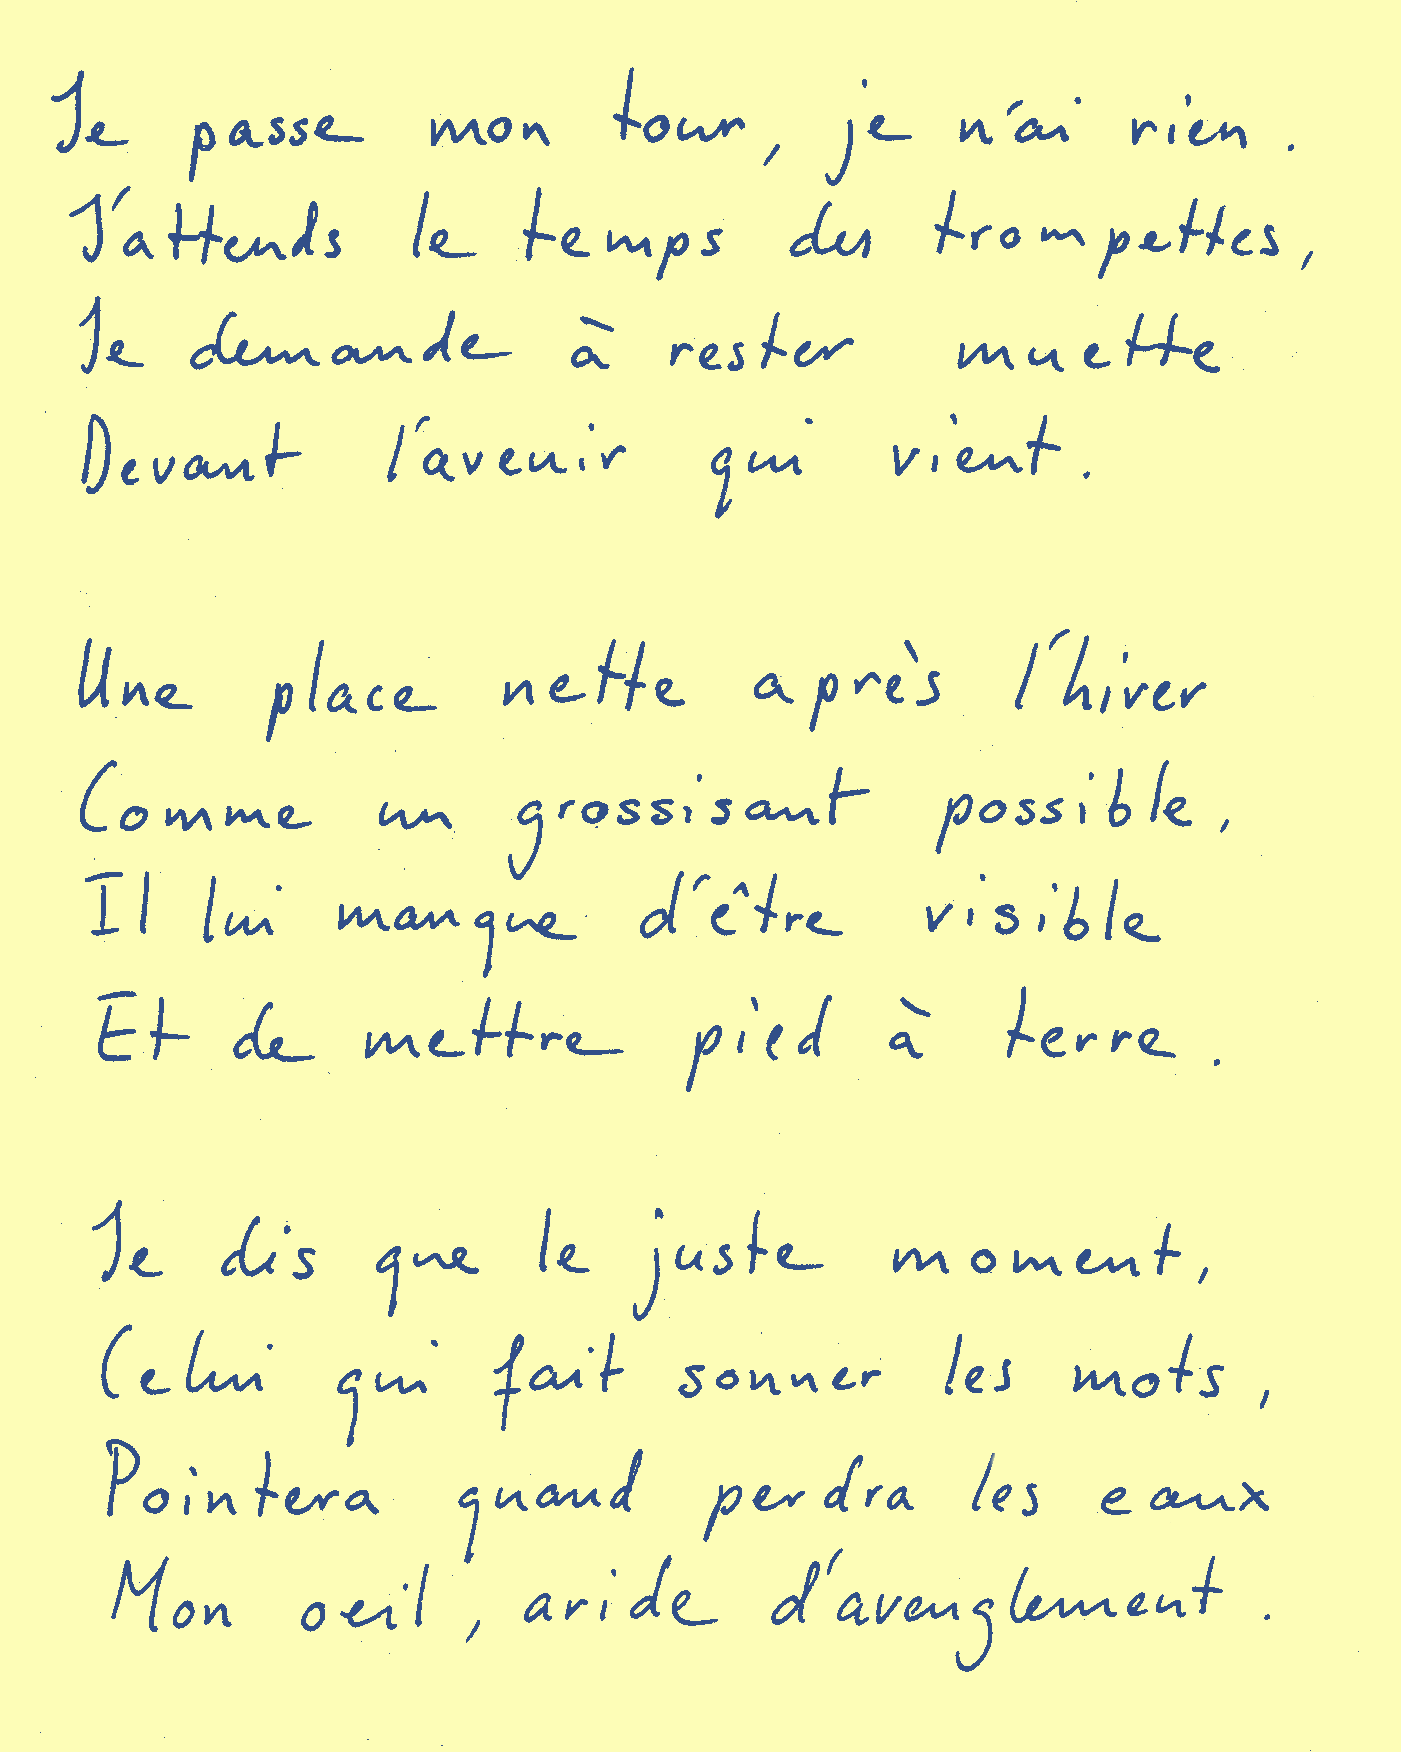 Je passe mon tour, je n'ai rien.
J'attends le temps des trompettes,
Je demande à rester muette
Devant l'avenir qui vient.
Une place nette après l'hiver
Comme un grossisant possible,
Il lui manque d'être visible
Et de mettre pied à terre.
Je dis que le juste moment,
Celui qui fait sonner les mots,
Pointera quand perdra les eaux
Mon oeil, aride d'aveuglement.